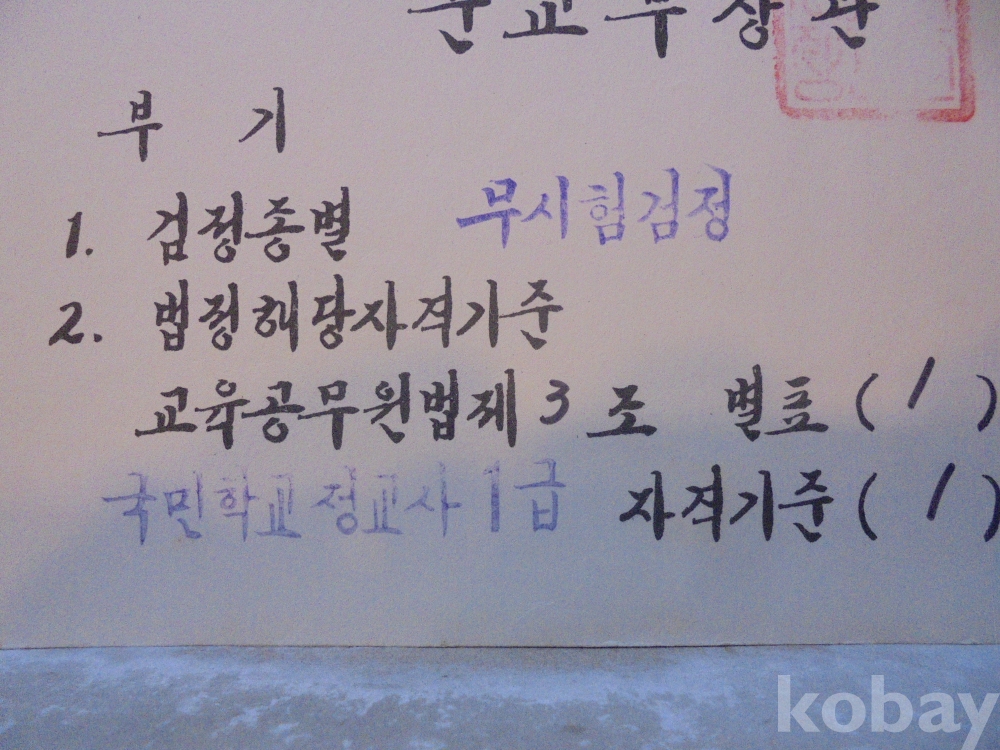 문교부장관
부 기
1. 검정종별 무시험검정
2. 법정해당자격기준
교육공무원법제3조 별표(1)
국민학교정교사1급 자격기준(1)
kobay